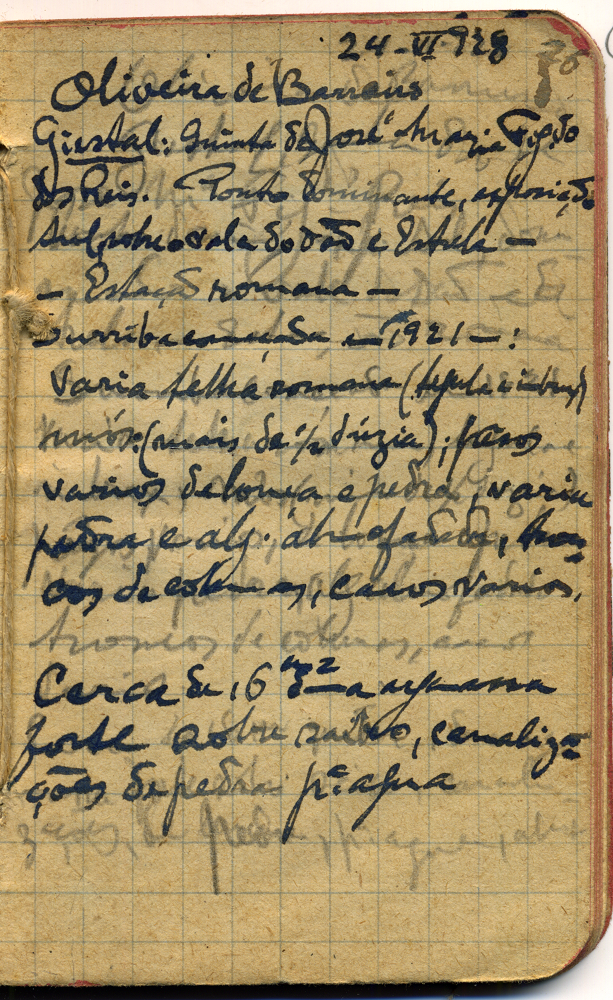 24-VI-928
Oliveira de Barreiros
Giestal: Quinta de José Maria Figdo
dos Reis. Ponto dominante, exposição
sul sobre o vale do Dão e Estrela —
— Estação romana —
Surriba em 1921 — :
Varia telha romana (tegula e imbrex)
mós (mais de 1/2 dúzia); pesos
varios de louça e pedra, varia
pedra e alg. almofadada, tron-
cos de colunas, cacos varios.
Cerca de 16 m2 de argamassa
forte sobre saibro, canaliza-
ções de pedra pa. agua